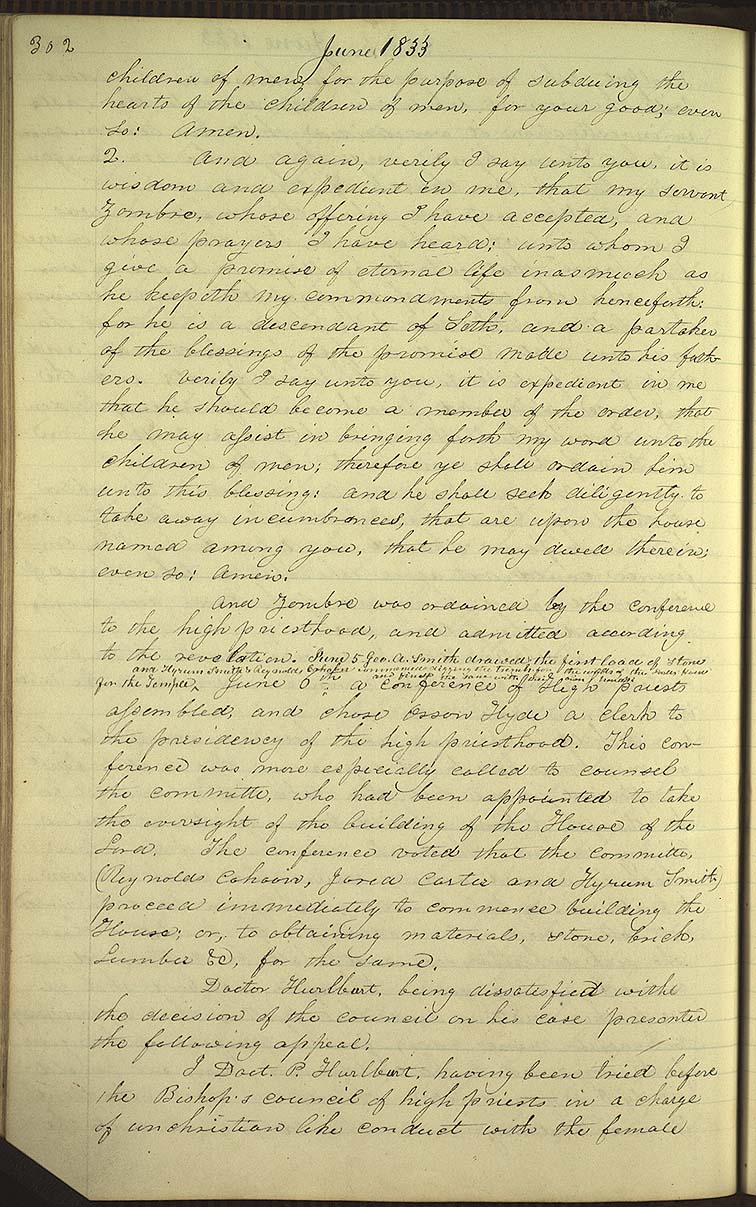 302
June 1833
children of men, for the purpose of subduing the
hearts of the children of men, for your good; even
so: Amen.
2. And again, verily I say unto you, it is
wisdom and expedient in me, that my servent
Zombre, whose offering I have accepted, and
whose prayers I have heard; unto whom I
give a promise of eternal life inasmuch as
he keepeth my commandments from henceforth:
for he is a descendant of Seth, and a partaker
of the blessings of the promise made unto his fath-
ers. Verily I say unto you, it is expedient in me
that he should become a member of the order, that
he may assist in bringing forth my word unto the
children of men; therefore ye shall ordain him
unto this blessing: and he shall seek diligently to
take away incumbrances, that are upon the house
named among you, that he may dwell therein;
even so: Amen.
And Zombre was ordained by the conference
to the high priesthood, and admitted according
to the revelation. June 5 Geo. A. Smith drawed the first load of stone
and Hyrum Smith & Reynolds Cahoon commenced digging the trench for the walls of the Lords House
and finish the same with their own hands
for the Temple. June 6th a conference of High priests
assembled, and chose Orson Hyde a clerk to
the presidency of the high priesthood. This con-
ference was more especially called to counsel
the committe, who had been appointed to take
the oversight of the building of the House of the
Lord. The conference voted that the committe,
(Reynolds Cahoon, Jared Carter and Hyrum Smith)
proceed immediately to commence building the
House; or, to obtaining materials, stone, brick,
Lumber &c, for the same.
Doctor Hurlbert, being dissatisfied with
the decision of the council on his case presented
the following appeal.
I Doct. P. Hurlbert, having been tried before
the Bishop's council of high priests in a charge
of unchristian like conduct with the female